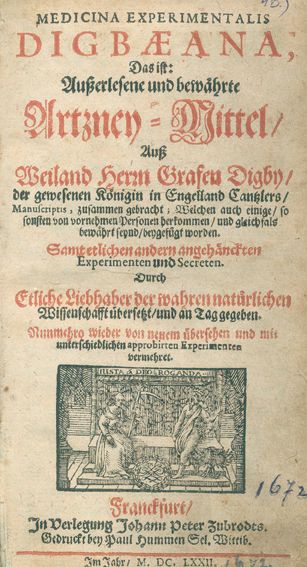 MEDICINA EXPERIMENTALIS
DIGBÆANA,
Das ist:
Außerlesene und bewährte
Artzney-Mittel/
Auß
Weiland Herrn Grafen Digby/
der gewesenen Königin in Engelland Cantzlers/
Manuscriptis, zusammen gebracht; Welchen auch einige/ so
sonsten von vornehmen Personen herkommen/ und gleichfals
bewährt seynd/ beygefügt worden.
Sampt etlichen andern angehänckten
Experimenten und Secreten.
Durch
Etliche Liebhaber der wahren natürlichen
Wissenschafft übersetzt/ und an Tag gegeben.
Nunmehro wieder von neuem übersehen und mit
unterschiedlichen approbirten Experimenten
vermehret.
IUSTA A DEO ROGANDA
1672
Franckfurt/
In Verlegung Johann Peter Zubrodts.
Gedruckt bey Paul Hummen Sel. Wittib.
Im Jahr/ M. DC. LXXII.
1672